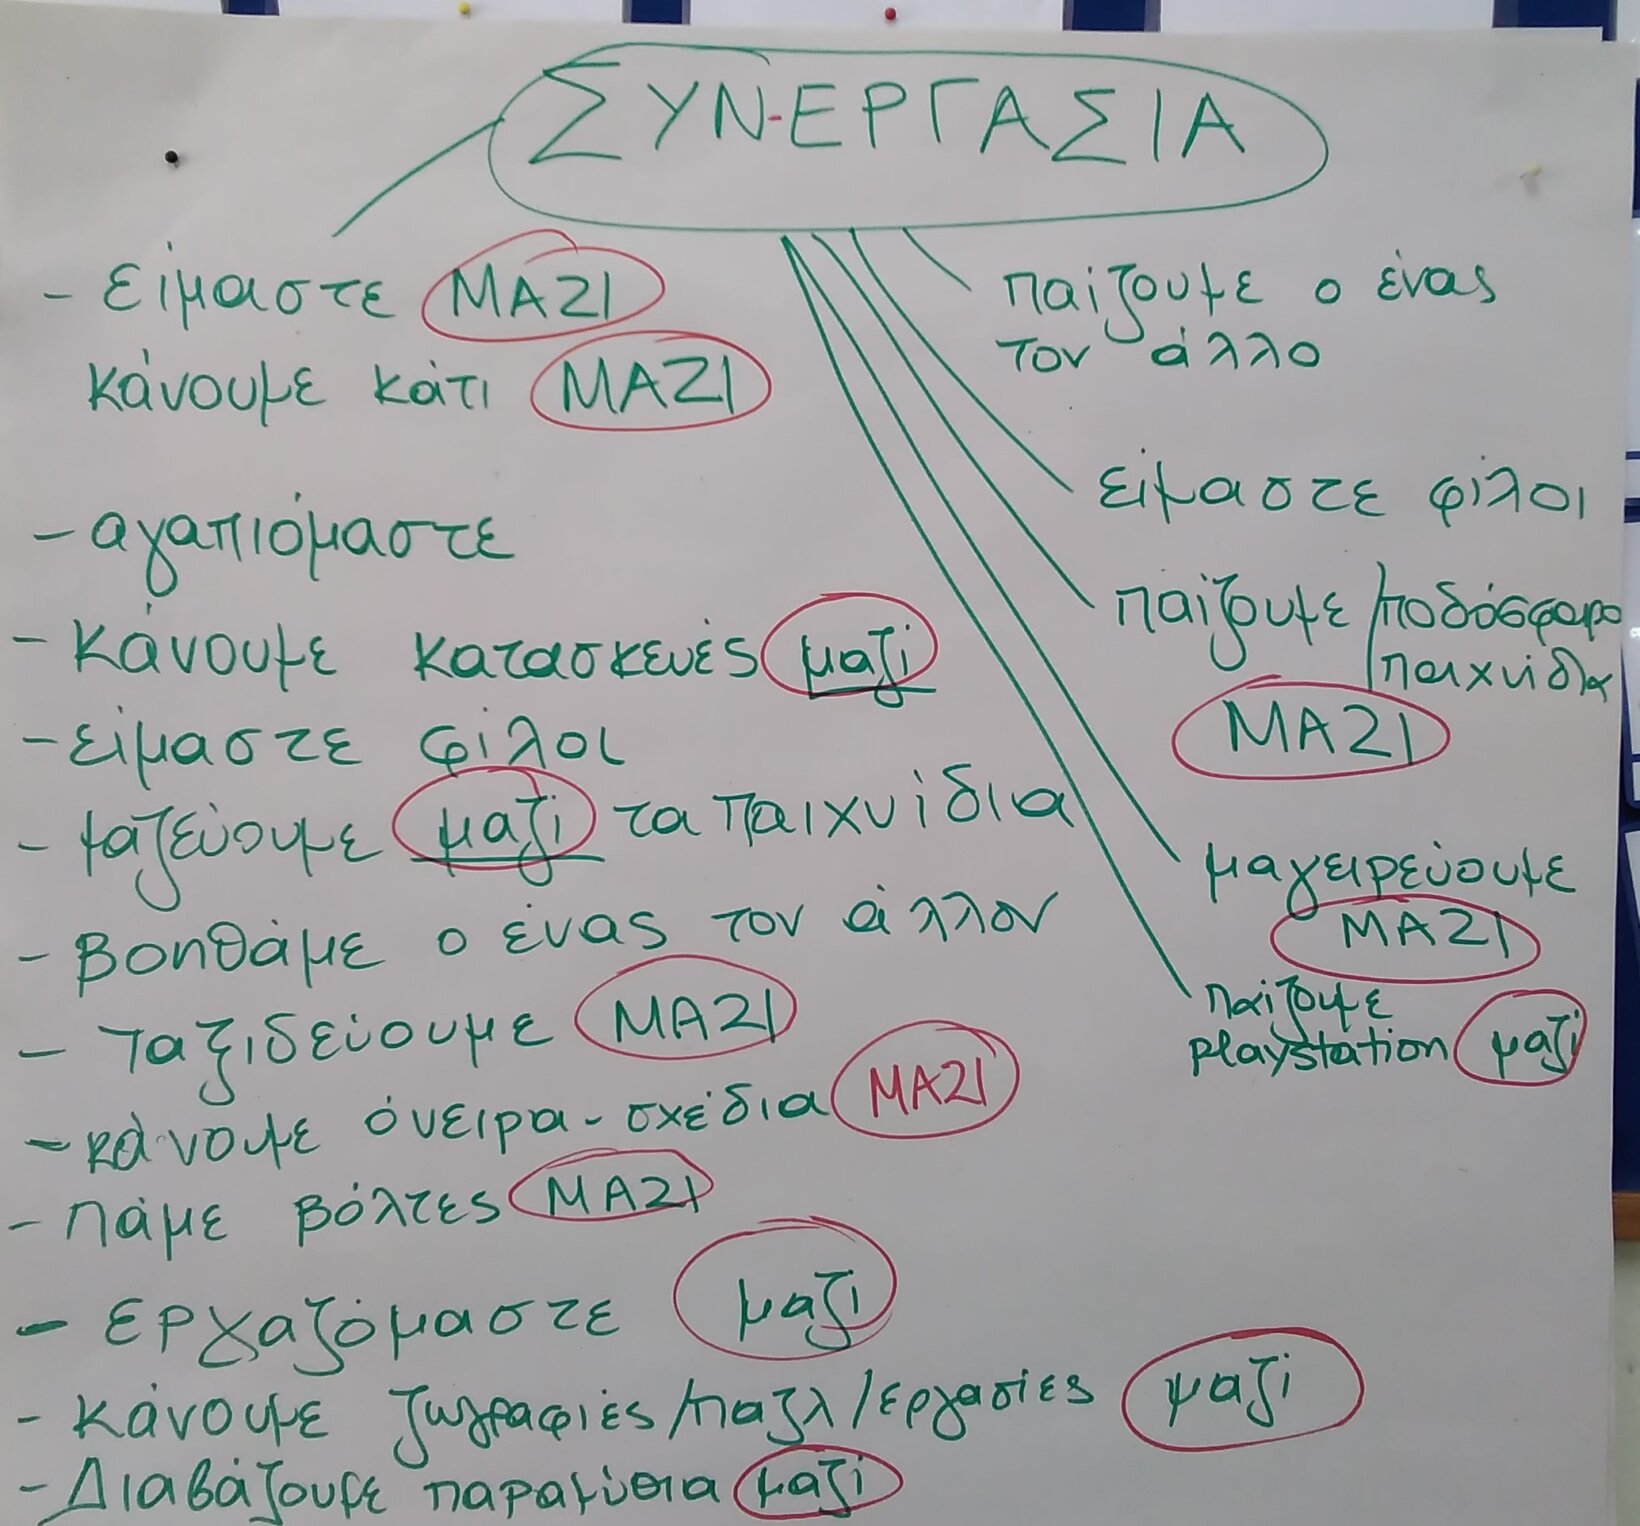 ΣΥΝ-ΕΡΓΑΣΙΑ
- είμαστε ΜΑΖΙ
κάνουμε κάτι ΜΑΖΙ
- αγαπιόμαστε
- κάνουμε κατασκευές μαζί
- είμαστε φίλοι
- μαζεύουμε μαζί τα παιχνίδια
- βοηθάμε ο ένας τον άλλον
- ταξιδεύουμε ΜΑΖΙ
- κάνουμε όνειρα - σχέδια ΜΑΖΙ
- πάμε βόλτες ΜΑΖΙ
- εργαζόμαστε μαζί
- κάνουμε ζωγραφιές/παζλ/εργασίες μαζί
- Διαβάζουμε παραμύθια μαζί
παίζουμε ο ένας
τον άλλο
είμαστε φίλοι
παίζουμε /ποδόσφαιρο
παιχνίδια
ΜΑΖΙ
μαγειρεύουμε
ΜΑΖΙ
παίζουμε
playstation μαζί